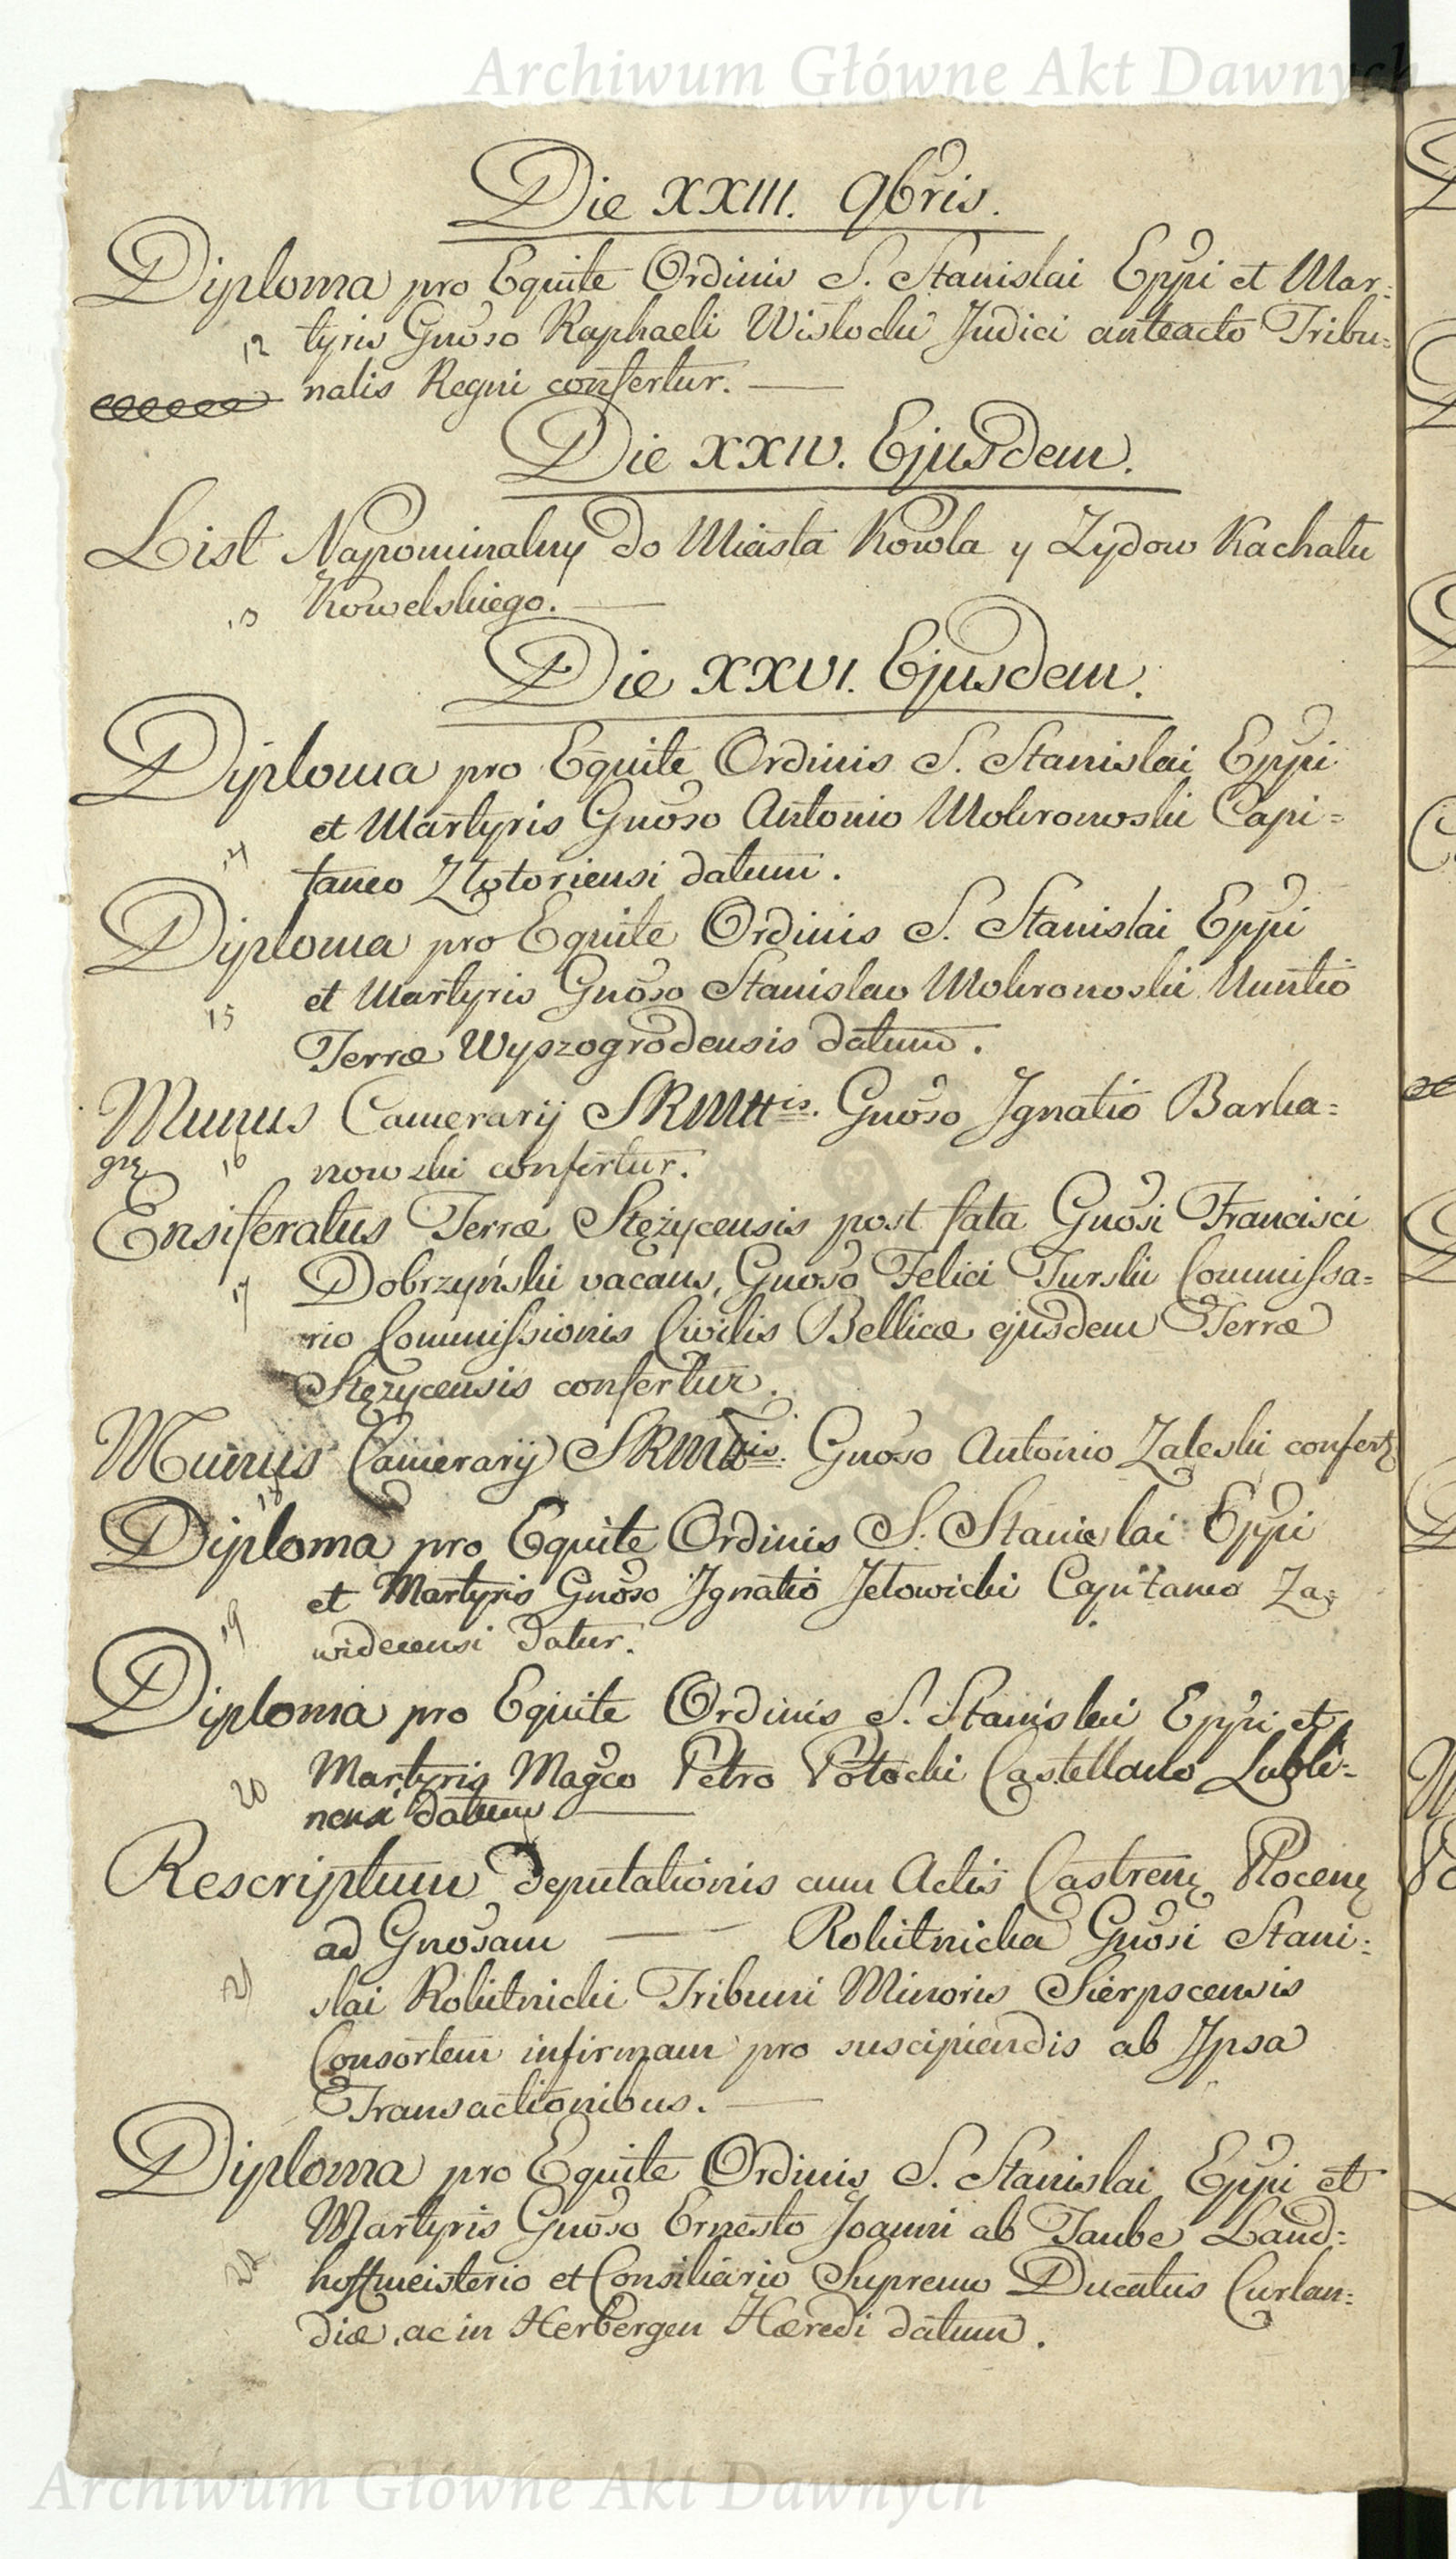 Archiwum Główne Akt Dawnych
Die XXIII. 9bris.
Diploma pro Equite Ordinis S. Stanislai Eppi et Mar:
12 tyris Gnoso Raphaeli Wisłocki Judici anteacto Tribu=
nalis Regni confertur. —
Die XXIV. Ejusdem.
List Napominalny do Miasta Kowla y Zydow Kachału
13 Kowelskiego. —
Die XXVI. Ejusdem.
Diploma pro Equite Ordinis S. Stanislai Eppi
et Martyris Gnoso Antonio Mokronoski Capi=
14 taneo Złotoriensi datum.
Diploma pro Equite Ordinis S. Stanislai Eppi
15 et Martyris Gnoso Stanislao Mokronoski Nuntio
Terræ Wyszogrodensis datum.
Munus Camerarij SRMttis. Gnoso Ignatio Barka=
grz 16 nowski confertur.
Ensiferatus Terræ Stężycensis post fata Gnosi Francisci
17 Dobrzyński vacans, Gnoso Felici Turski Commissa=
rio Commissionis Civilis Bellicæ ejusdem Terræ
Stężycensis confertur.
Munus Camerarij SRMttis. Gnoso Antonio Zaleski confertz
18
Diploma pro Equite Ordinis S. Stanislai Eppi
et Martyris Gnoso Ignatio Jełowicki Capitaneo Za=
19 widecensi datur.
Diploma pro Equite Ordinis S. Stanislai Eppi et
20 Martyris Magco Petro Potocki Castellano Lubli=
nensi datum —
Rescriptum deputationis cum Actis Castrenz Plocenz
ad Gnosam — Rokitnicka Gnosi Stani:
21 slai Rokitnicki Tribuni Minoris Sierpscensis
Consortem infirmam pro suscipiendis ab Ipsa
Transactionibus. —
Diploma pro Equite Ordinis S. Stanislai Eppi et
Martyris Gnoso Ernesto Joanni ab Taube Land=
22 hoffmeisterio et Consiliario Supremo Ducatus Curlan=
diæ, ac in Herbergen Hæredi datum.
Archiwum Główne Akt Dawnych